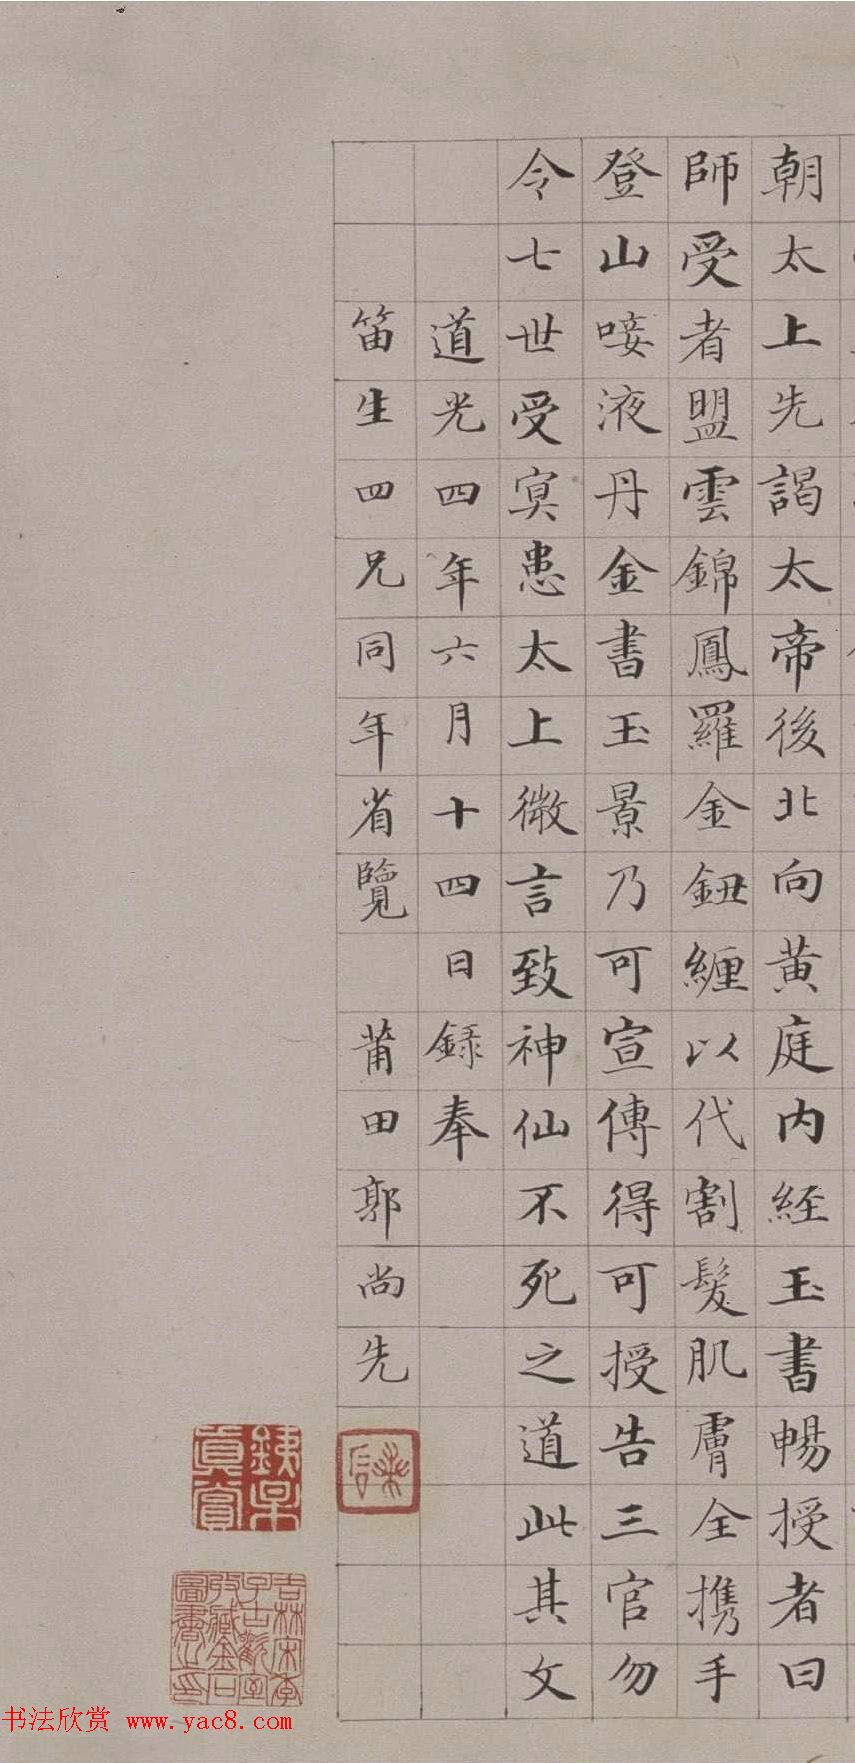 朝太上先謁太帝後北向黄庭内経玉書暢授者曰
師受者盟雲錦鳳羅金鈕纏以代割髮肌膚全携手
登山唼液丹金書玉景乃可宣傳得可授告三官勿
令七世受冥患太上微言致神仙不死之道此其文
道光四年六月十四日録奉
笛生四兄同年省覽 莆田郭尚先
鐵梁真賞
吉林宋季子古歡室收藏金石圖書之印
书法欣赏 www.yac8.com